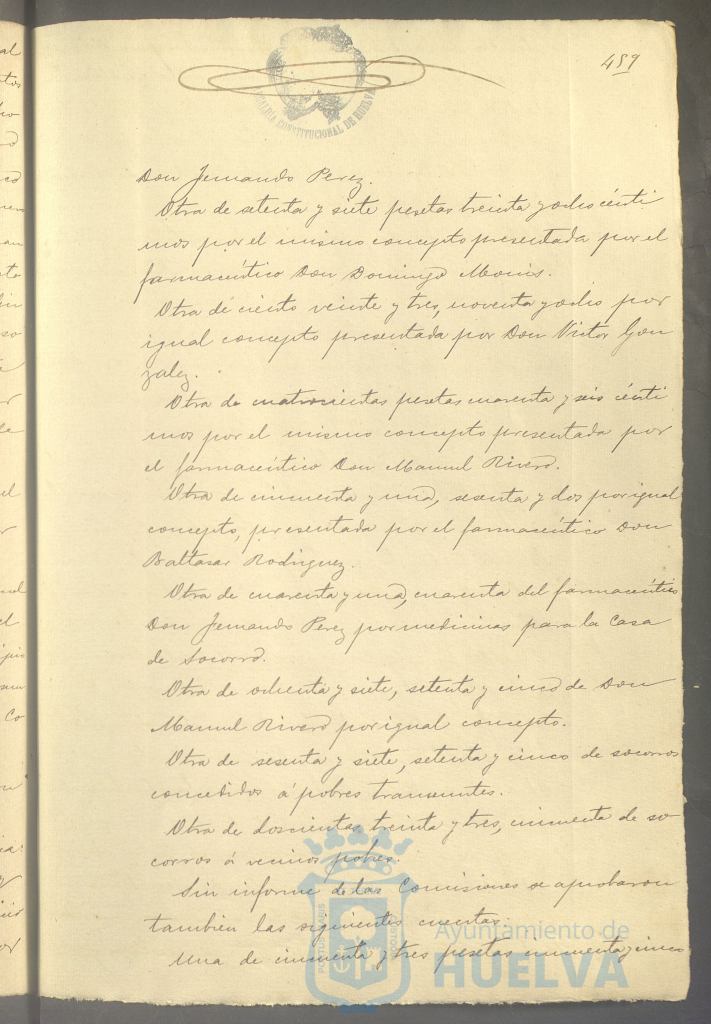 459
ALCALDIA CONSTITUCIONAL DE HUELVA
Don Fernando Perez.
Otra de setenta y siete pesetas treinta y ocho cénti
mos por el mismo concepto presentada por el
farmacéutico Don Domingo Moris.
Otra de ciento veinte y tres, noventa y ocho por
igual concepto presentada por Don Victor Gon
zalez.
Otra de cuatrocientas pesetas cuarenta y seis cénti
mos por el mismo concepto presentada por
el farmacéutico Don Manuel Rivero.
Otra de cincuenta y una, sesenta y dos por igual
concepto, presentada por el farmacéutico Don
Baltasar Rodriguez.
Otra de cuarenta y una, cuarenta del farmacéutico
Don Fernando Perez por medicinas para la Casa
de Socorro.
Otra de ochenta y siete, setenta y cinco de Don
Manuel Rivero por igual concepto.
Otra de sesenta y siete, setenta y cinco de socorros
concedidos á pobres transeuntes.
Otra de doscientas treinta y tres, cincuenta de so
corros á vecinos pobres.
Sin informe de las Comisiones se aprobaron
tambien las siguientes cuentas.
Una de cincuenta y tres pesetas cincuenta y cinco
Ayuntamiento de
HUELVA